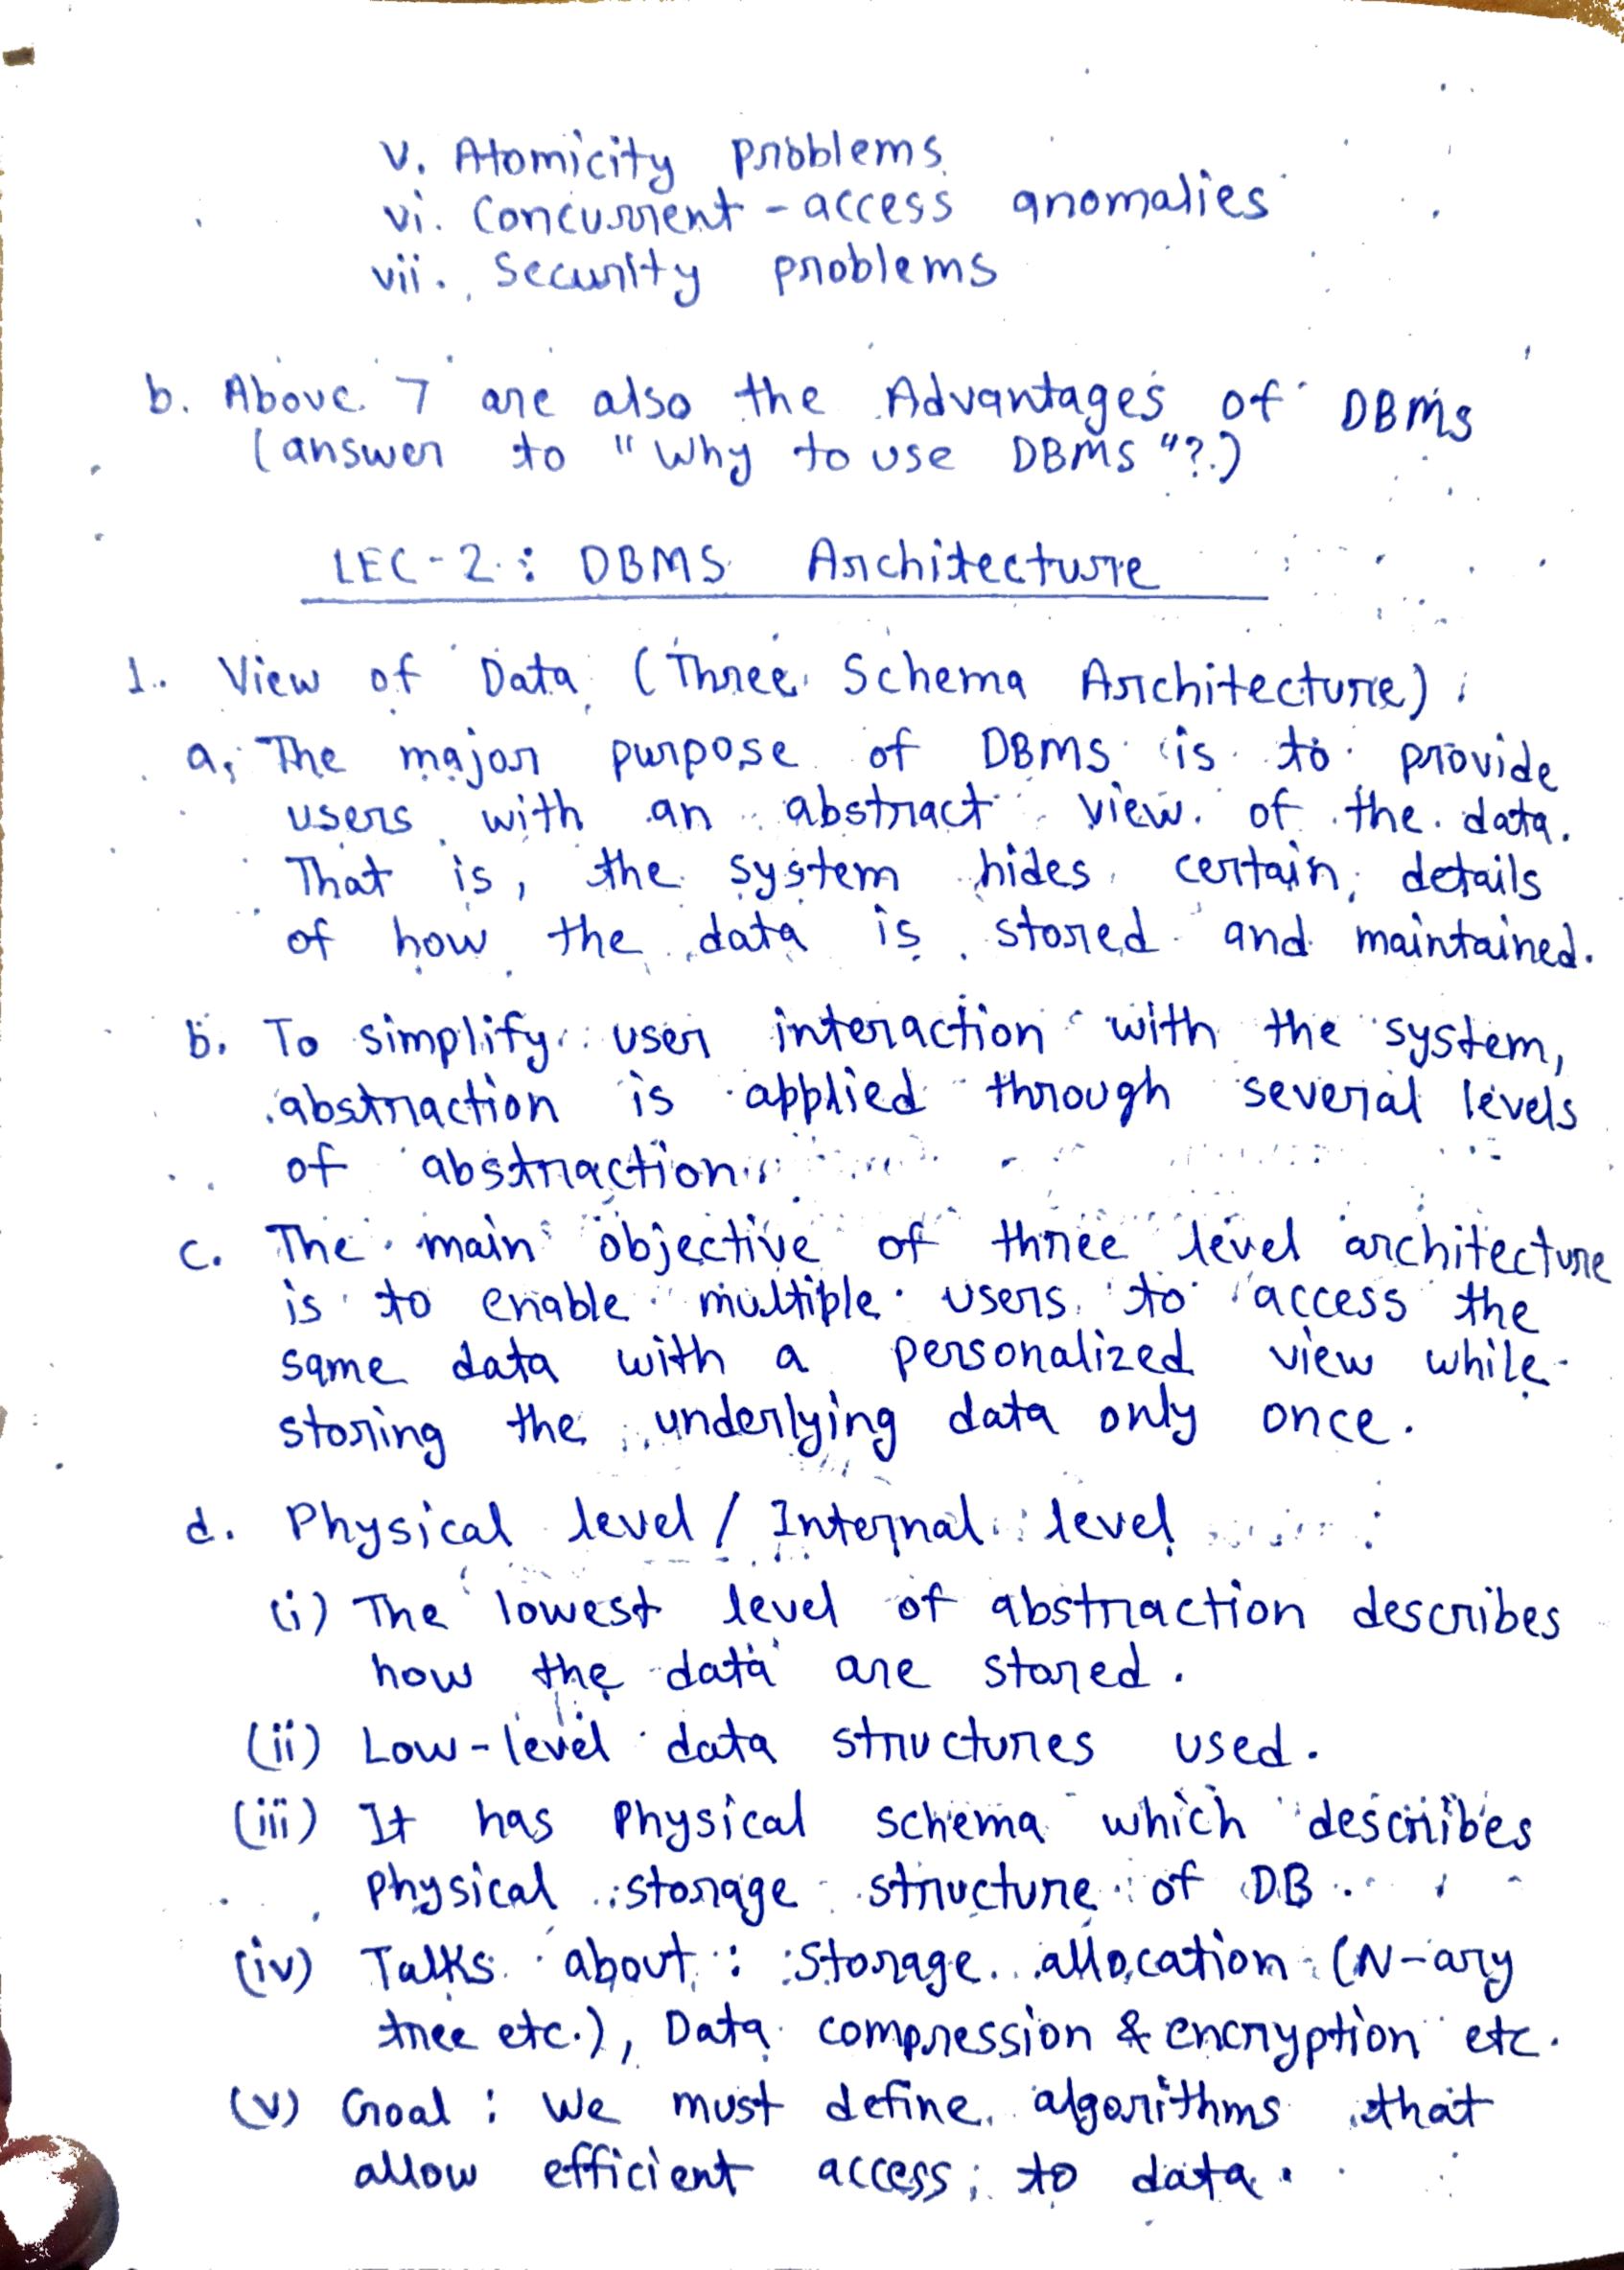 v. Atomicity problems
vi. Concurrent - access anomalies
vii. Security problems
b. Above 7 are also the Advantages of DBMS
(answer to "Why to use DBMS"?)
LEC-2 : DBMS Architecture
1. View of Data (Three Schema Architecture) :
a. The major purpose of DBMS is to provide
users with an abstract view of the data.
That is, the system hides certain details
of how the data is stored and maintained.
b. To simplify user interaction with the system,
abstraction is applied through several levels
of abstraction.
c. The main objective of three level architecture
is to enable multiple users to access the
same data with a personalized view while
storing the underlying data only once.
d. Physical level / Internal level
(i) The lowest level of abstraction describes
how the data are stored.
(ii) Low-level data structures used.
(iii) It has Physical schema which describes
physical storage structure of DB.
(iv) Talks about : Storage allocation (N-ary
tree etc.), Data compression & encryption etc.
(v) Goal : We must define algorithms that
allow efficient access to data.